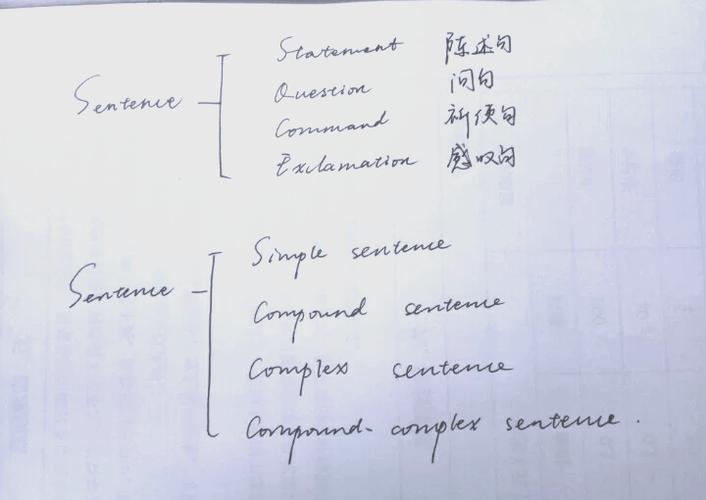 Sentence
Statement 陈述句
Question 问句
Command 祈使句
Exclamation 感叹句
Sentence
Simple sentence
Compound sentence
Complex sentence
Compound-complex sentence.